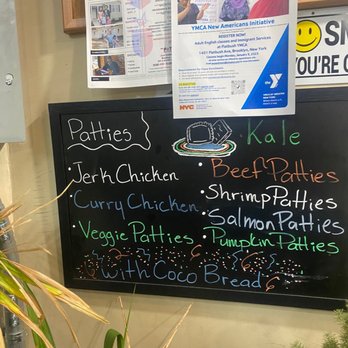 YMCA New Americans Initiative
REGISTER NOW!
Adult English classes and Immigrant Services
at Flatbush YMCA
1401 Flatbush Ave, Brooklyn, New York
the
NYC
SM
YOU'RE
Patties
Kale
• Jerk Chicken
• Beef Patties
Curry Chicken
• Shrimp Patties
• Salmon Patties
Veggie Patties
Pumpkin Patties
with Coco Bread